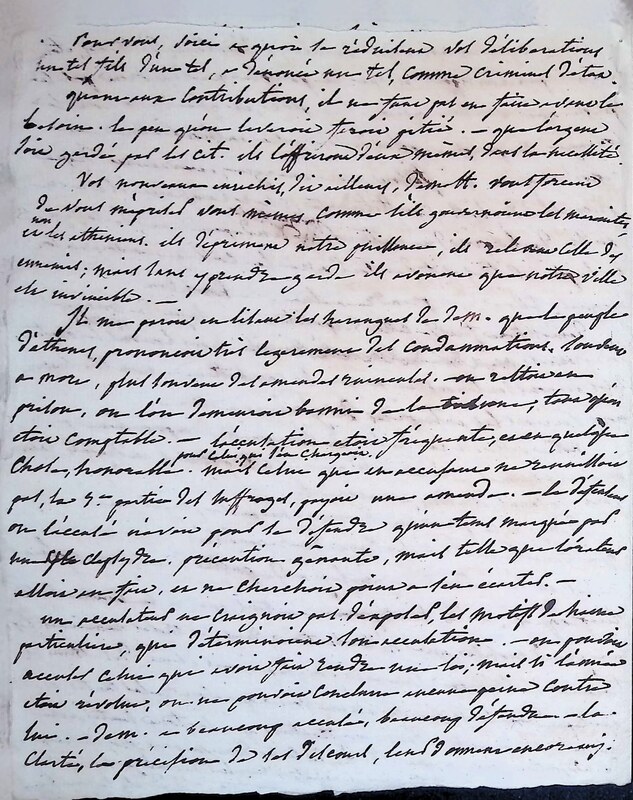 Pour vous, voici a quoi se réduisent vos déliberations
un tel fils d'un tel, a dénoncé un tel, comme criminel d'etat
quant aux contributions, il ne faut pas en faire avant le
besoin. le peu qu'on leveroit feroit pitié. — que l'argent
soit gardé par les cit. ils l'offriront d'eux mêmes, dans la nécessité.
Vos nouveaux enrichis, d'ailleurs, dem. vous forcent
de vous mépriser vous mêmes, comme s'ils gouvernoient les
non les atheniens. ils dépriment notre puissance, ils relevent celle des
ennemis; mais sans y prendre garde ils avouent que notre ville
est invincible. —
Il me paroit en lisant les harangues de dem. que le peuple
d'athenes, prononçoit très legerement des condamnations. souvent
a mort, plus souvent des amendes ruineuses. — on restoit en
prison, ou l'on demeuroit banni de la tribune, tant qu'on
etoit comptable. — l'accusation etoit fréquente, et en quelque
chose, honorable pour celui qui s'en chargeoit. mais celui qui en accusant ne réunissoit
pas, la 5e partie des suffrages, payoit une amende. — le défenseur
ou l'accusé n'avoit pour se défendre qu'un tems marqué par
un clepsydre. précaution gênante, mais telle que l'orateur
alloit au fait, et ne cherchoit point a s'en écarter. —
un accusateur ne craignoit pas d'exposer, les motifs de haine
particuliere, qui déterminoient son accusation — on pouvoit
accuser celui qui avoit fait rendre une loi; mais si l'année
etoit révolue, on ne pouvoit conclure aucune peine contre
lui. — dem. a beaucoup accusé, beaucoup défendu — la
clarté, la précision de ses discours, lui donnent encore